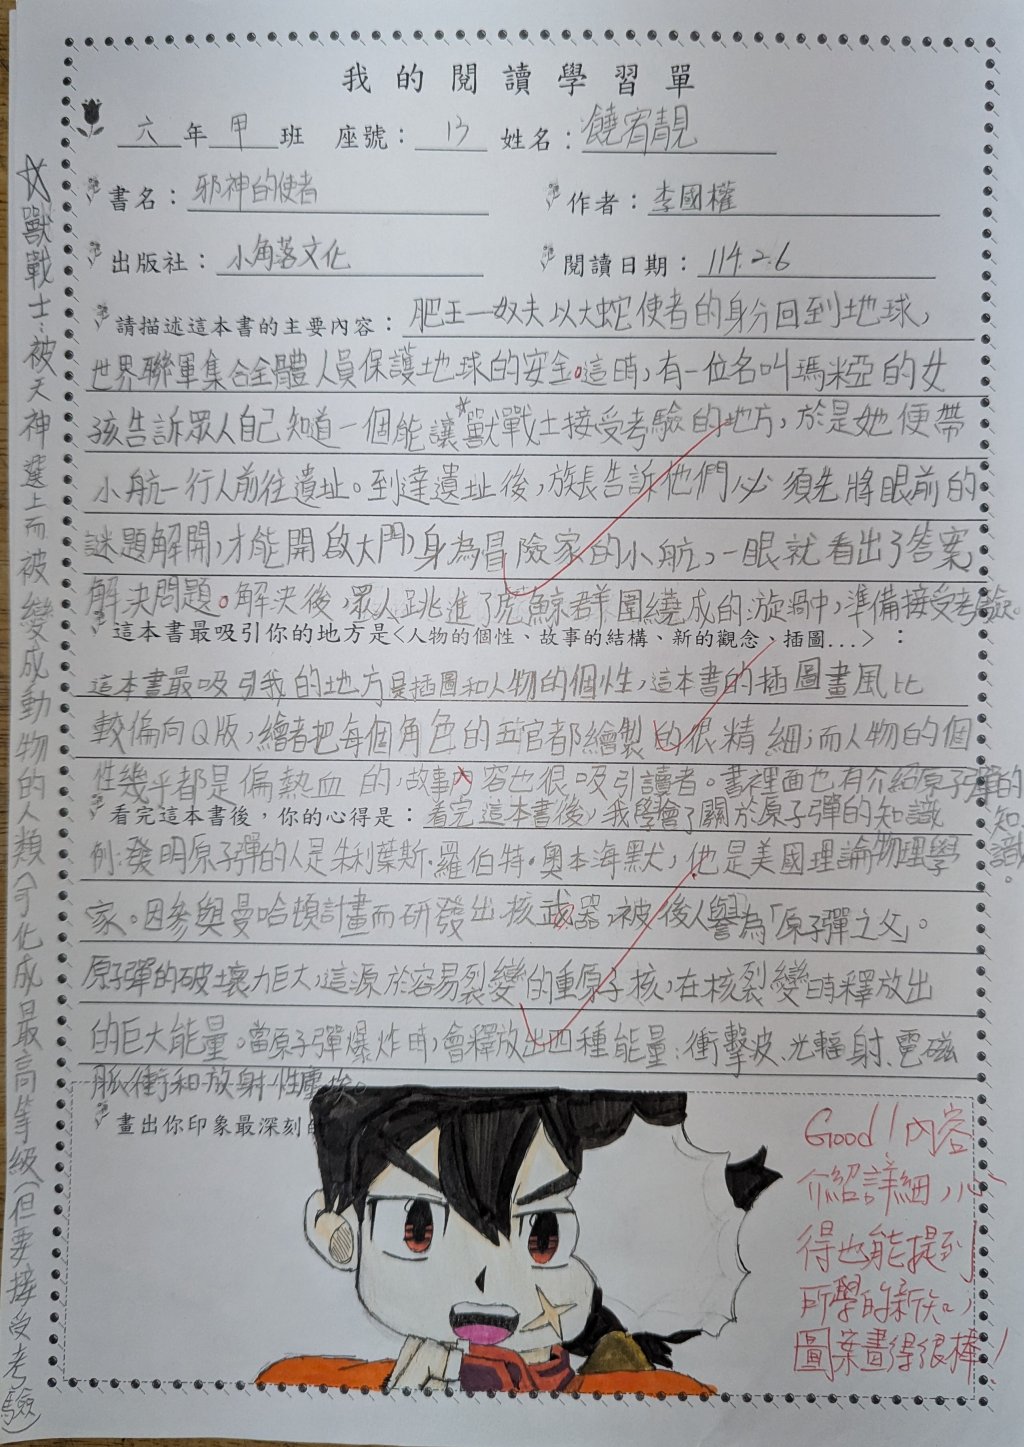 我的閱讀學習單
六年甲班 座號：13 姓名：饒宥靚
書名：邪神的使者 作者：李國權
出版社：小角落文化 閱讀日期：114.2.6
請描述這本書的主要內容：肥王一奴夫以大蛇使者的身分回到地球，
世界聯軍集合全體人員保護地球的安全。這時，有一位名叫瑪米亞的女
孩告訴眾人自己知道一個能讓*獸戰士接受考驗的地方，於是她便帶
小航一行人前往遺址。到達遺址後，族長告訴他們必須先將眼前的
謎題解開，才能開啟大門，身為冒險家的小航，一眼就看出了答案，
解決問題。解決後，眾人跳進了虎鯨群圍繞成的漩渦中，準備接受考驗。
這本書最吸引你的地方是<人物的個性、故事的結構、新的觀念、插圖...>：
這本書最吸引我的地方是插圖和人物的個性，這本書的插圖畫風比
較偏向Q版，繪者把每個角色的五官都繪製的很精細，而人物的個
性幾乎都是偏熱血的，故事內容也很吸引讀者。書裡面也有介紹原子彈的
知識。
看完這本書後，你的心得是：看完這本書後，我學會了關於原子彈的知識
例：發明原子彈的人是朱利葉斯．羅伯特．奧本海默，他是美國理論物理學
家。因參與曼哈頓計畫而研發出核武器，被後人譽為「原子彈之父」。
原子彈的破壞力巨大，這源於容易裂變的重原子核，在核裂變時釋放出
的巨大能量。當原子彈爆炸時，會釋放出四種能量：衝擊波、光輻射、電磁
脈衝和放射性塵埃。
畫出你印象最深刻的
Good！內容
介紹詳細，心
得也能提到
所學的新知，
圖案畫得很棒！
*獸戰士：被天神選上而被變成動物的人類（可化成最高等級（但要接受考驗）